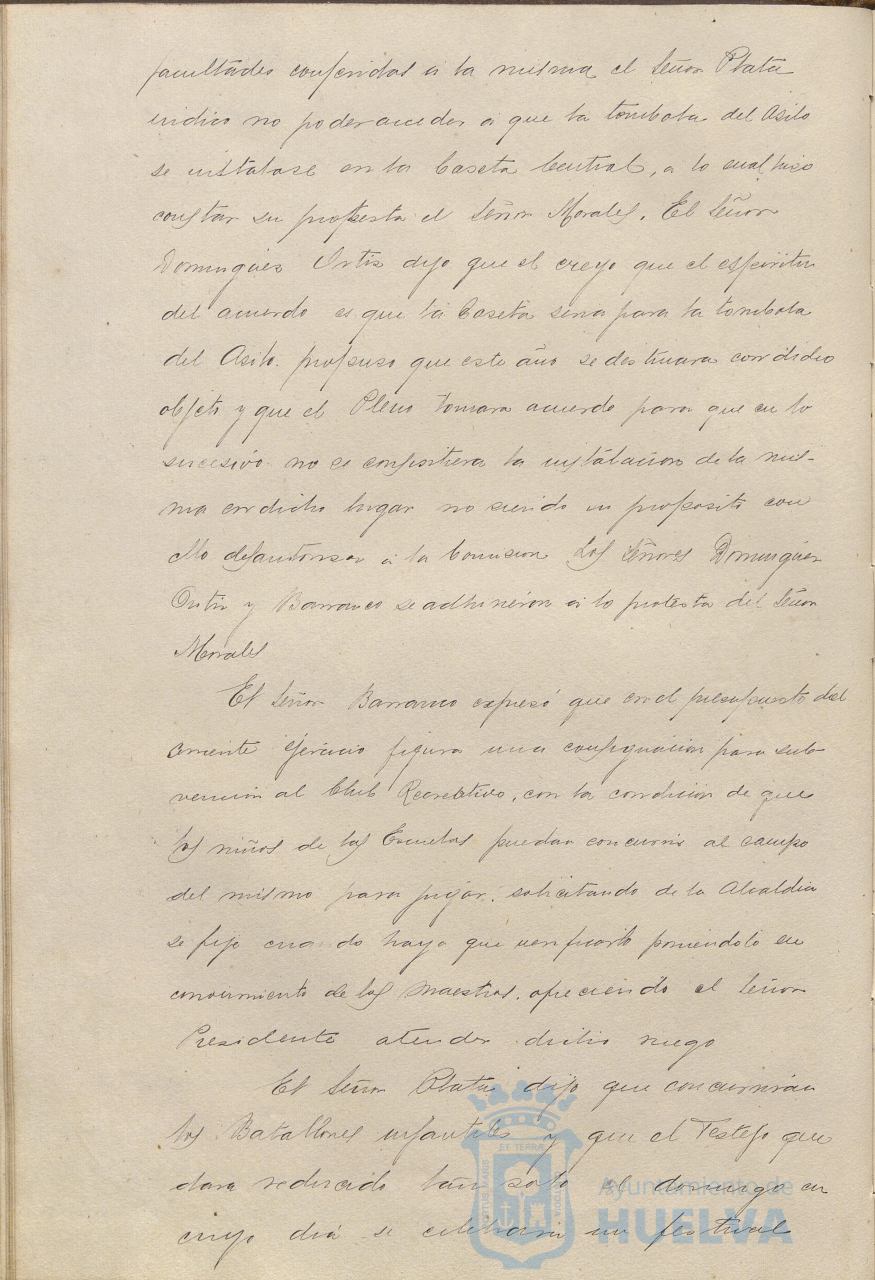 facultades conferidas a la misma, el Señor Plata
indico no poder acceder a que la tombola del Asilo
se instalase en la Caseta Central, a lo cual hizo
constar su protesta el Señor Morales. El Señor
Dominguez Ortiz dijo que el creyo que el espiritu
del acuerdo es que la Caseta seria para la tombola
del Asilo. propuso que este año se destinara con dicho
objeto y que el Pleno tomara acuerdo para que en lo
sucesivo no se consintiera la instalacion de la mis-
ma en dicho lugar no siendo su proposito con
ello desautorizar a la Comision Los Señores Dominguez
Ortiz y Barranco se adhirieron a la protesta del Señor
Morales
El Señor Barranco expresó que en el presupuesto del
corriente ejercicio figura una consignacion para sub-
vencion al Club Recreativo, con la condicion de que
los niños de las Escuelas puedan concurrir al campo
del mismo para jugar: solicitando de la Alcaldia
se fije cuando haya que verificarlo poniendolo en
conocimiento de los Maestros. ofreciendo el Señor
Presidente atender dicho ruego
El Señor Plata dijo que concurriran
los Batallones infantiles y que el Festejo que
dara reducido tan solo al domingo en
cuyo dia se celebrara un festival
ET TERRA
Ayuntamiento de
HUELVA